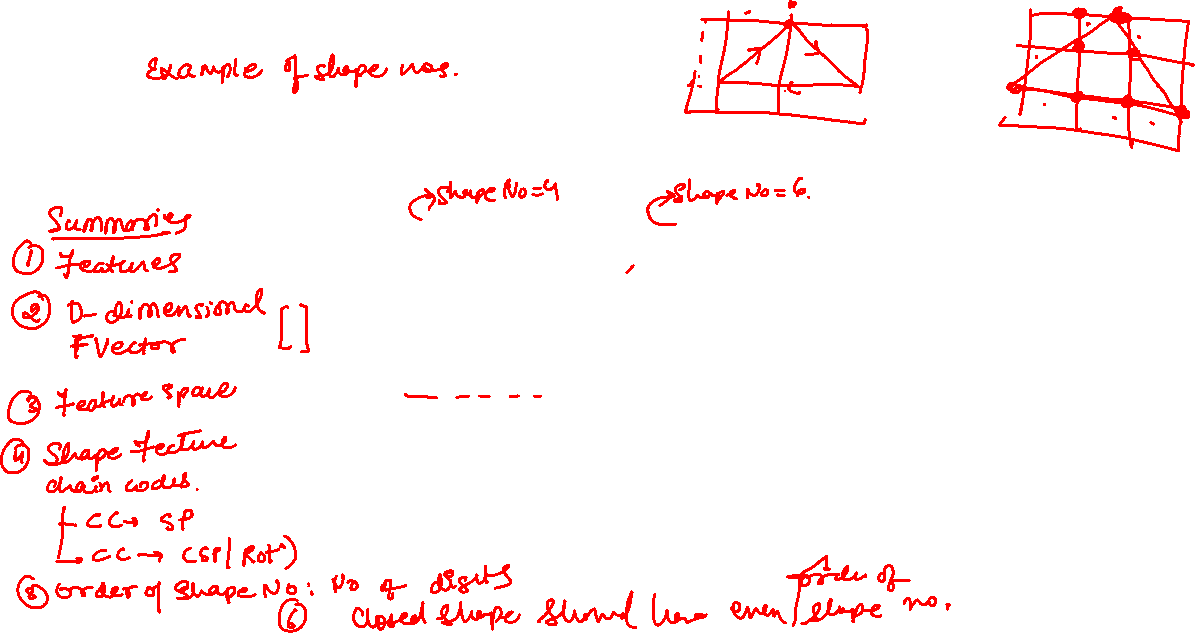 Example of shape nos.
Shape No=4
Shape No=6.
Summaries
① Features
② D-dimensional
FVector [ ]
③ Feature Space
④ Shape Fecture
chain codes.
CC→ SP
CC→ CSP/ Rotⁿ)
⑤ order of Shape No: No of digits
⑥ Closed shape should have even order of shape no.